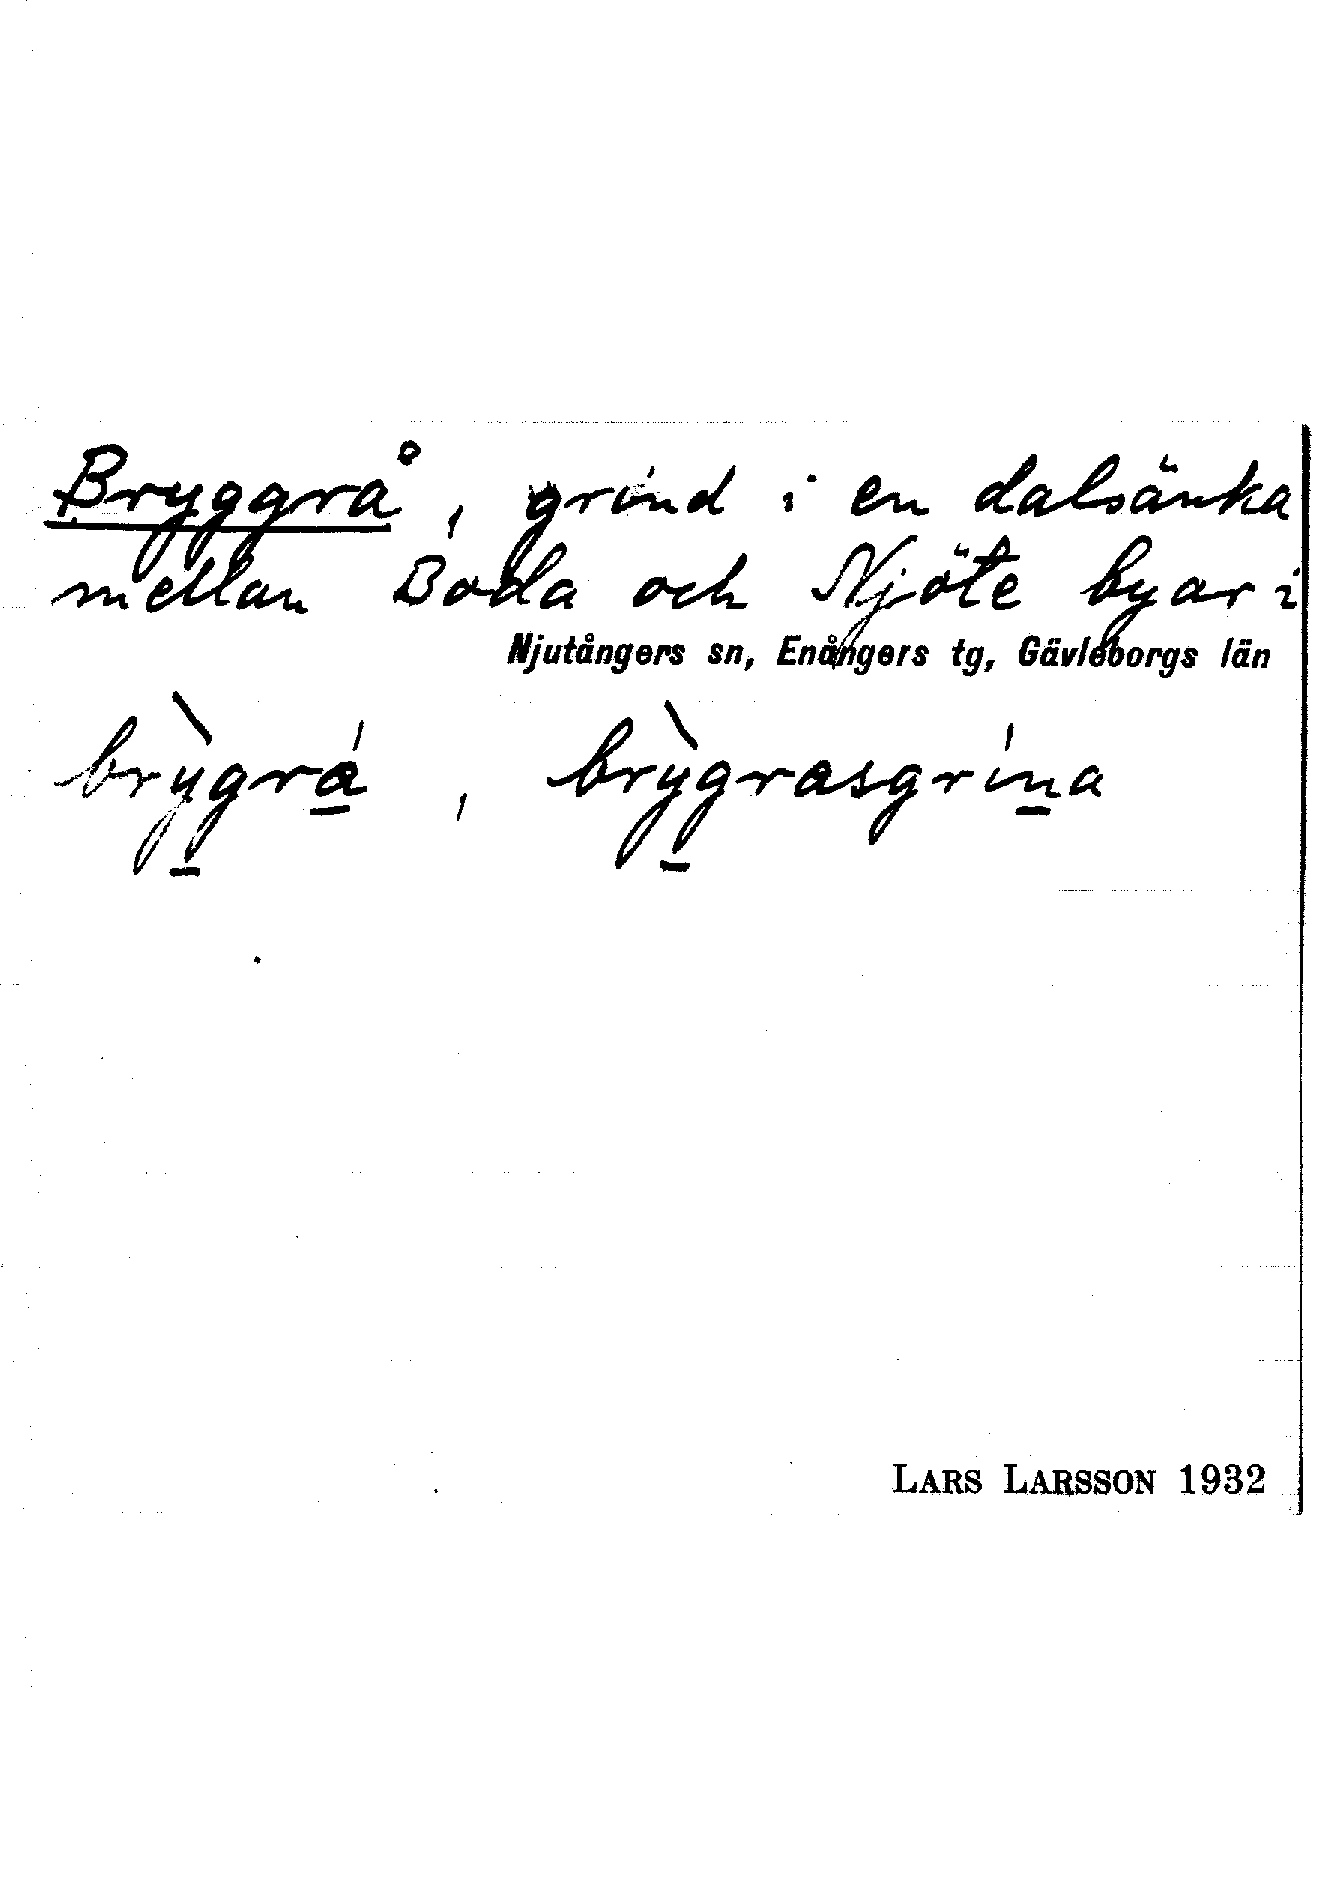 Bryggrå, grind i en dalsänka
mellan Boda och Njöte byar i
Njutångers sn, Enångers tg, Gävleborgs län
brỳgrá, brỳgrasgrína
LARS LARSSON 1932